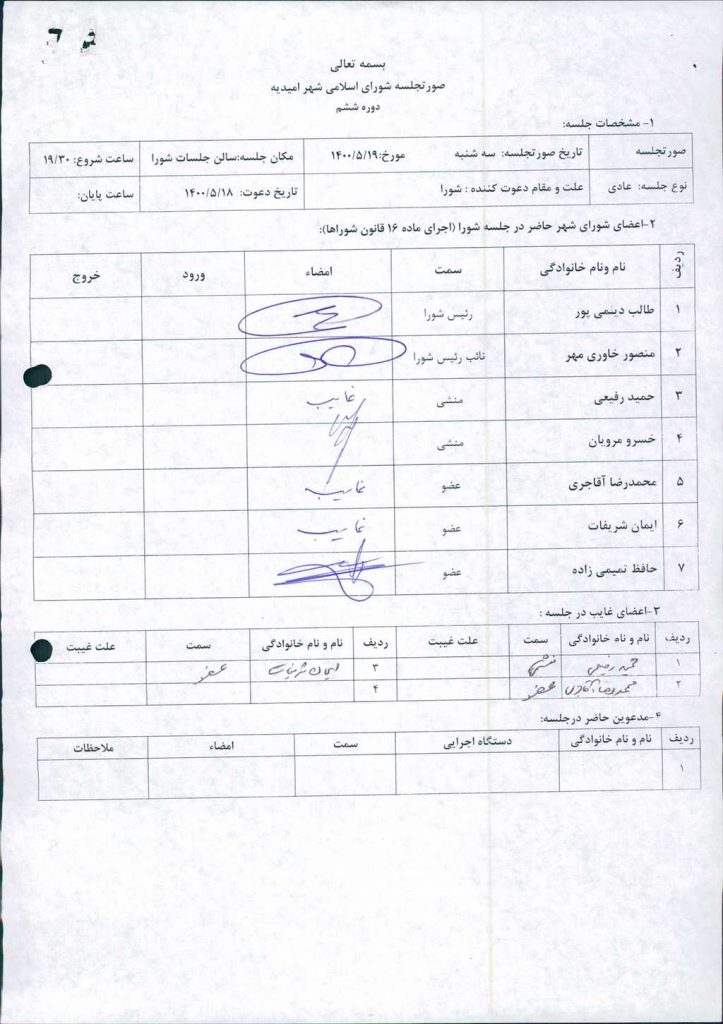 بسمه تعالی
صورتجلسه شورای اسلامی شهر امیدیه
دوره ششم
۱- مشخصات جلسه:
صورتجلسه تاریخ صورتجلسه: سه شنبه مورخ:۱۴۰۰/۵/۱۹ مکان جلسه:سالن جلسات شورا ساعت شروع: ۱۹/۳۰
نوع جلسه: عادی علت و مقام دعوت کننده : شورا تاریخ دعوت: ۱۴۰۰/۵/۱۸ ساعت پایان:
۲-اعضای شورای شهر حاضر در جلسه شورا (اجرای ماده ۱۶ قانون شوراها):
ردیف نام ونام خانوادگی سمت امضاء ورود خروج
۱ طالب دینمی پور رئیس شورا
۲ منصور خاوری مهر نائب رئیس شورا
۳ حمید رفیعی منشی غایب
۴ خسرو مرویان منشی
۵ محمدرضا آقاجری عضو غایب
۶ ایمان شریفات عضو غایب
۷ حافظ تمیمی زاده عضو
۳-اعضای غایب در جلسه :
ردیف نام و نام خانوادگی سمت علت غیبت ردیف نام و نام خانوادگی سمت علت غیبت
۱ حمید رفیعی منشی ۳ ایمان شریفات عضو
۲ محمدرضا آقاجری عضو ۴
۴-مدعوین حاضر درجلسه:
ردیف نام و نام خانوادگی دستگاه اجرایی سمت امضاء ملاحظات
۱